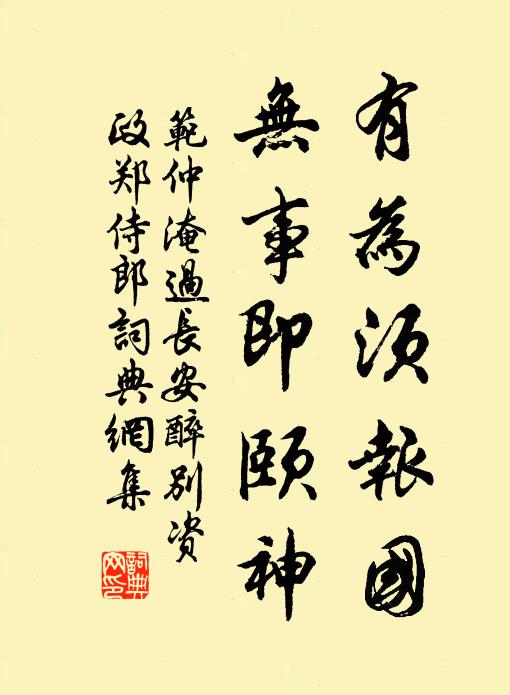 有為須報國
無事即頤神
範仲淹過長安醉別资
政郑侍郎詞典網集
詞典网印